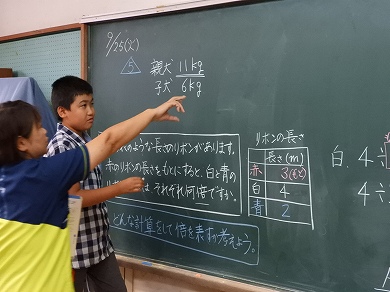 9/25(火)
5
親犬 11kg
子犬 6kg
のような長さのリボンがあります。
赤のリボンの長さをもとにすると、白と青の
それぞれ何倍ですか。
どんな計算をして倍を表すか考えよう。
リボンの長さ
長さ(m)
赤 3(もと)
白 4
青 2
白. 4÷
4÷